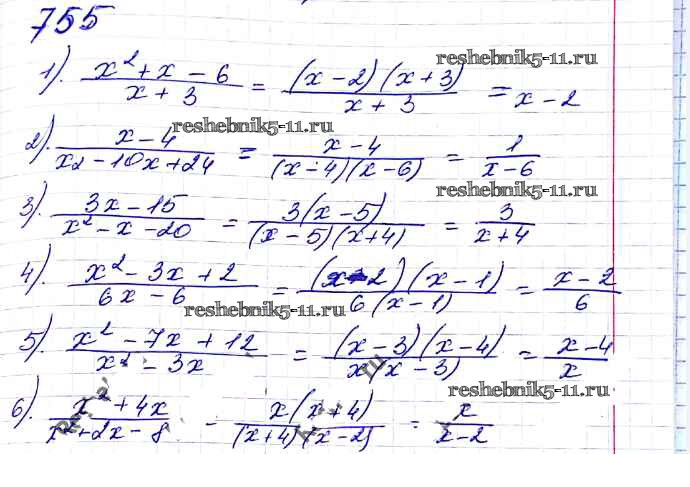 755
reshebnik5-11.ru
1). (x² + x - 6)/(x + 3) = ((x - 2)(x + 3))/(x + 3) = x - 2
reshebnik5-11.ru
2). (x - 4)/(x2 - 10x + 24) = (x - 4)/((x - 4)(x - 6)) = 1/(x - 6)
reshebnik5-11.ru
3). (3x - 15)/(x² - x - 20) = (3(x - 5))/((x - 5)(x + 4)) = 3/(x + 4)
4). (x² - 3x + 2)/(6x - 6) = ((x - 2)(x - 1))/(6(x - 1)) = (x - 2)/6
reshebnik5-11.ru
5). (x² - 7x + 12)/(x² - 3x) = ((x - 3)(x - 4))/(x(x - 3)) = (x - 4)/x
reshebnik5-11.ru
6). (x² + 4x)/(x² + 2x - 8) = (x(x + 4))/((x + 4)(x - 2)) = x/(x - 2)